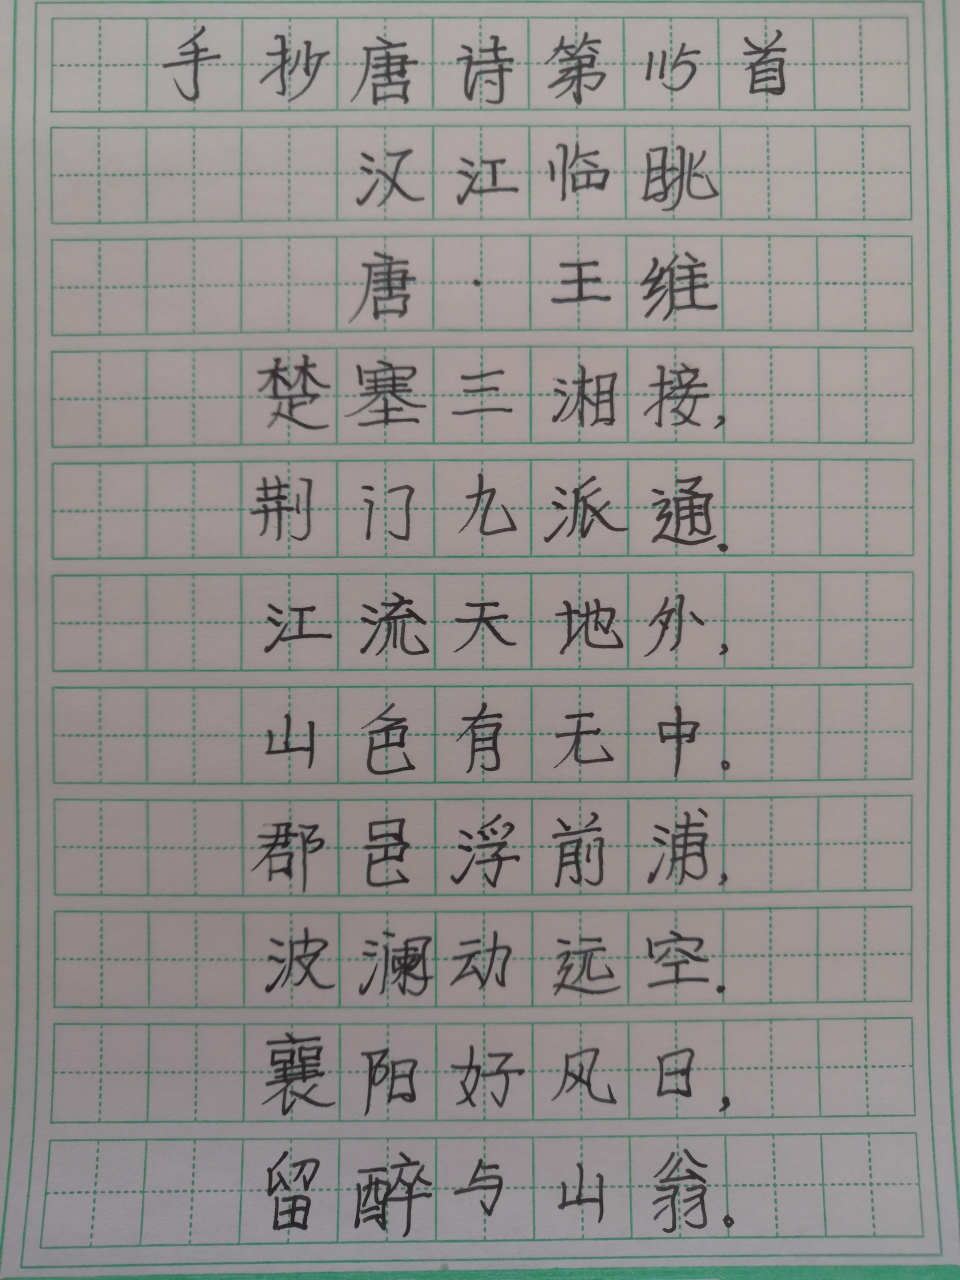 手抄唐诗第115首
汉江临眺
唐·王维
楚塞三湘接,
荆门九派通.
江流天地外,
山色有无中。
郡邑浮前浦,
波澜动远空.
襄阳好风日,
留醉与山翁。